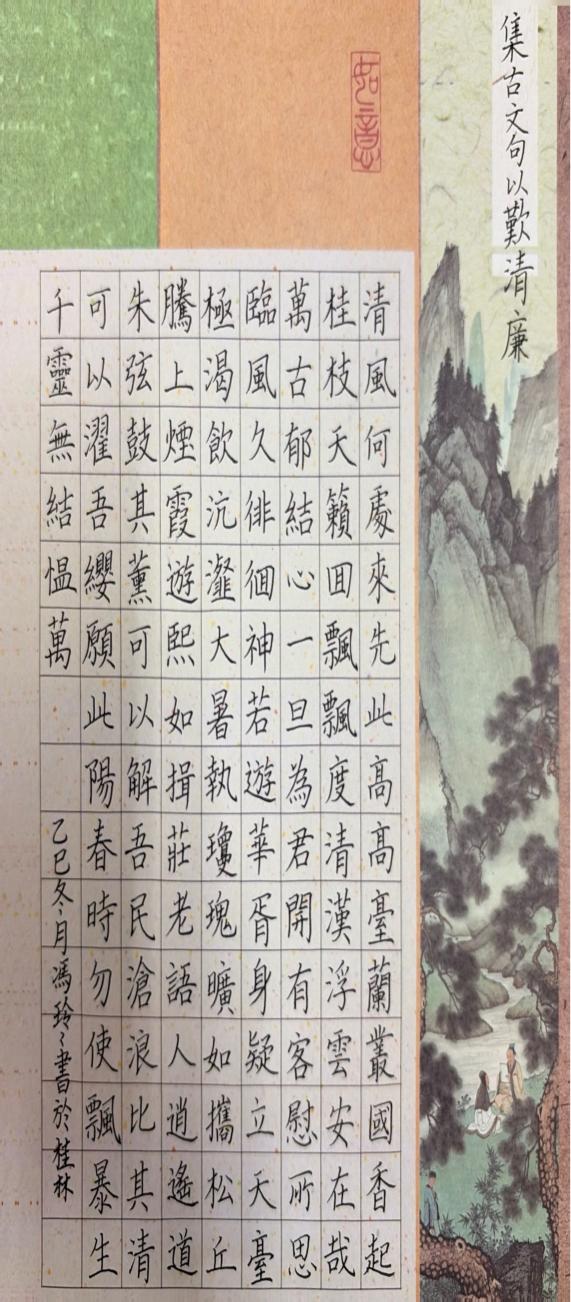 集古文句以歎清廉
清風何處來先此高高臺蘭叢國香起
桂枝天籟囬飄飄度清漢浮雲安在哉
萬古郁結心一旦為君開有客慰所思
臨風久徘徊神若遊華胥身疑立天臺
極渴飲沆瀣大暑執瓊瑰曠如攜松丘
騰上煙霞遊熙如揖莊老語人逍遙道
朱弦鼓其薰可以解吾民滄浪比其清
可以濯吾纓願此陽春時勿使飄暴生
千靈無結愠萬
乙巳冬月馮玲〻書於桂林
如意